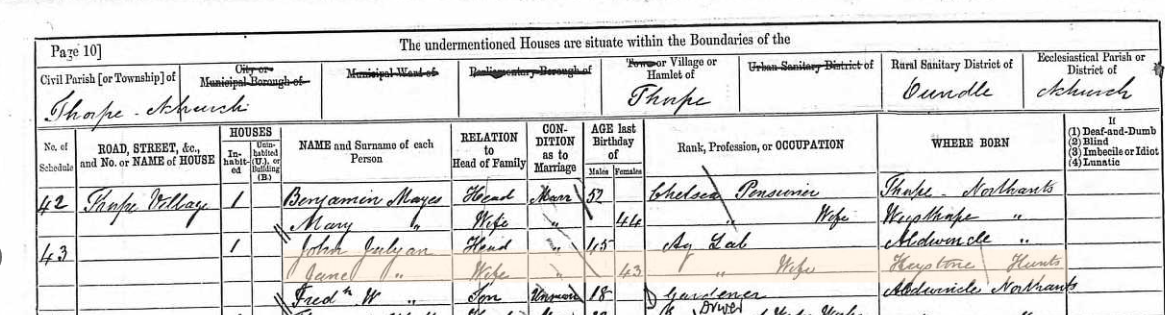 Page 10]
The undermentioned Houses are situate within the Boundaries of the
Civil Parish [or Township] of
City or Municipal Borough of
Municipal Ward of
Parliamentary Borough of
Town or Village or Hamlet of
Urban Sanitary District of
Rural Sanitary District of
Ecclesiastical Parish or District of
Thorpe Achurch
Thorpe
Oundle
Achurch
No. of Schedule
ROAD, STREET, &c., and No. or NAME of HOUSE
HOUSES
Inhabited
Uninhabited (U.), or Building (B.)
NAME and Surname of each Person
RELATION to Head of Family
CONDITION as to Marriage
AGE last Birthday of
Males
Females
Rank, Profession, or OCCUPATION
WHERE BORN
If
(1) Deaf-and-Dumb
(2) Blind
(3) Imbecile or Idiot
(4) Lunatic
42 Thorpe Village 1 Benjamin Mayes Head Marr 52 Chelsea Pensioner Thorpe Northants
Mary " Wife " 44 " Wife "
43 1 John Julyan Head " 45 Ag Lab Aldwincle "
Jane " Wife " 43 " Wife Keystone Hunts
Fredk W " Son Unmarr 18 Gardener Aldwincle Northants
Driver